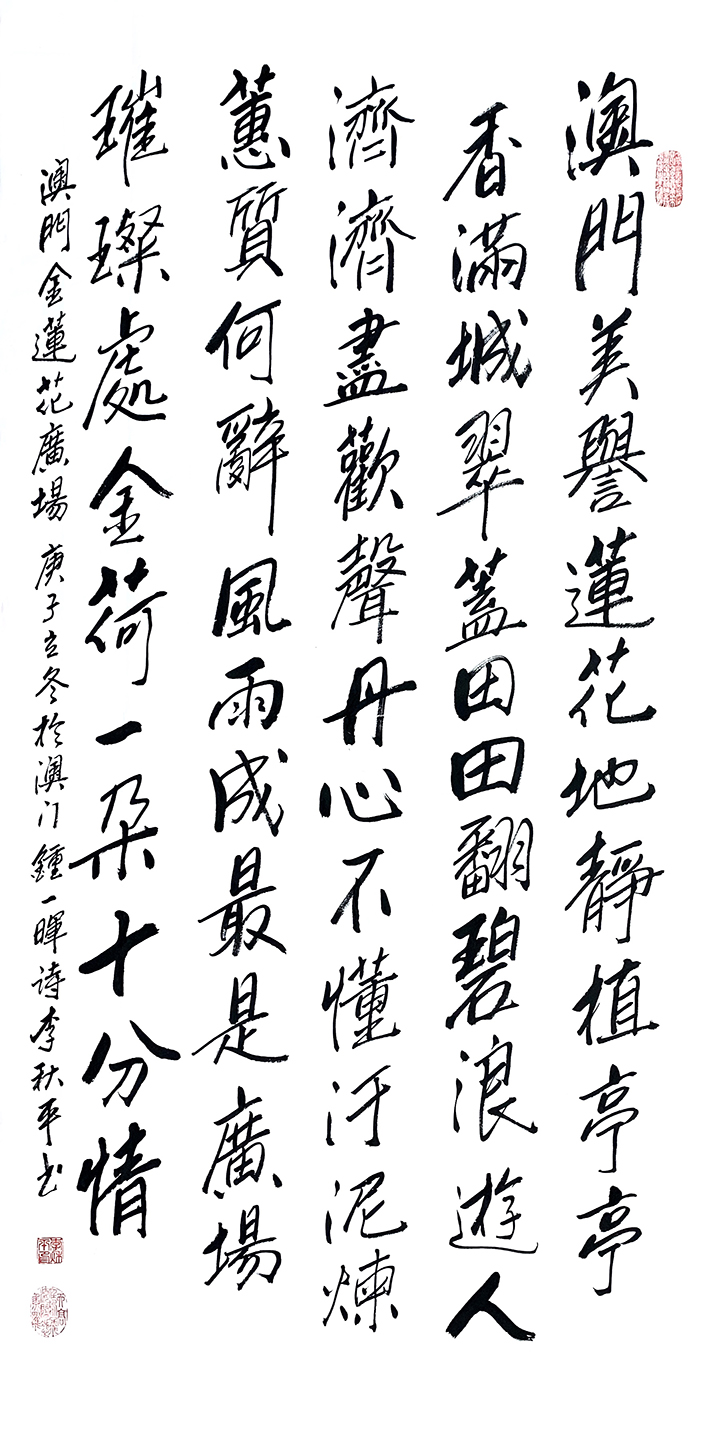 澳門美譽蓮花地靜植亭亭
香滿城翠蓋田田翻碧浪遊人
濟濟盡歡聲丹心不懂汙泥煉
蕙質何辭風雨成最是廣場
璀璨處金荷一朵十分情
澳門金蓮花廣場 庚子立冬於澳门鍾一暉诗李秋平书